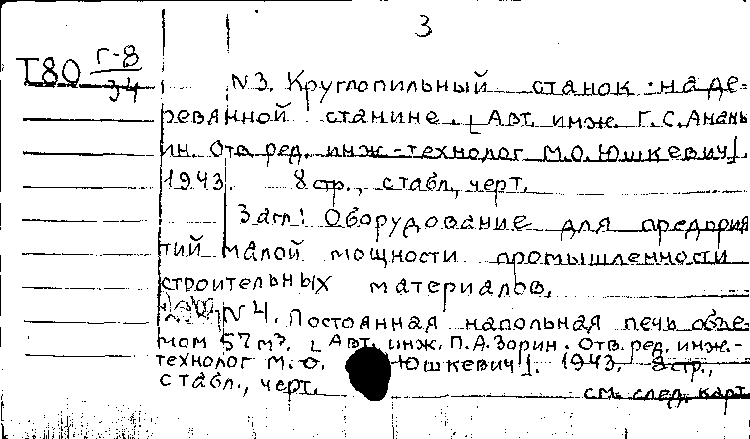 3
Т80 Г-8/34
N3. Круглопильный станок на де-
ревянной станине. [Авт. инж. Г.С. Анань
ин. Отв. ред. инж.-технолог М.О. Юшкевич].
1943. 8 стр., с табл., черт.
Загл: Оборудование для предприя
тий малой мощности промышленности
строительных материалов.
N4. Постоянная напольная печь объе-
мом 57 м³. [Авт. инж. П.А. Зорин. Отв. ред. инж.-
технолог М.О. Юшкевич]. 1943. 8 стр.,
с табл., черт.
см. след. карт.